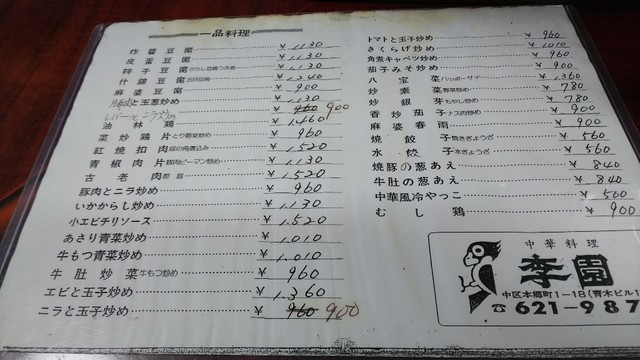 一品料理
炸醬豆腐 ¥ 1130
皮蛋豆腐 ¥ 1130
辣子豆腐 ¥ 1130
什錦豆腐 ¥ 1240
麻婆豆腐 ¥ 900
豚肉と玉葱炒め ¥ 1130
レバーとニラ炒め ¥ 960 900
油林鶏 ¥ 1,460
菜炒鶏片とり野菜炒め ¥ 960
紅焼扣肉豚の角煮込み ¥ 1,520
青椒肉片豚肉ピーマン炒め ¥ 1,130
古老肉酢豚 ¥ 1,520
豚肉とニラ炒め ¥ 960
いかからし炒め ¥ 1,130
小エビチリソース ¥ 1,520
あさり青菜炒め ¥ 1,010
牛もつ青菜炒め ¥ 1,010
牛肚炒菜牛もつ炒め ¥ 960
エビと玉子炒め ¥ 1,360
ニラと玉子炒め ¥ 960 900
トマトと玉子炒め ¥ 960
きくらげ炒め ¥ 1010
角煮キャベツ炒め ¥ 960
茄子みそ炒め ¥ 900
八宝菜ハッポーサイ ¥ 1,360
炒素菜野菜炒め ¥ 780
炒銀芽もやし炒め ¥ 780
香炒茄子ナス肉炒め ¥ 900
麻婆春雨 ¥ 900
焼餃子焼きぎょうざ ¥ 560
水餃子水ぎょうざ ¥ 560
焼豚の葱あえ ¥ 840
牛肚の葱あえ ¥ 840
中華風冷やっこ ¥ 560
むし鶏 ¥ 900
中華料理
李園
中区本郷町1-18(青木ビル1
☎621-987